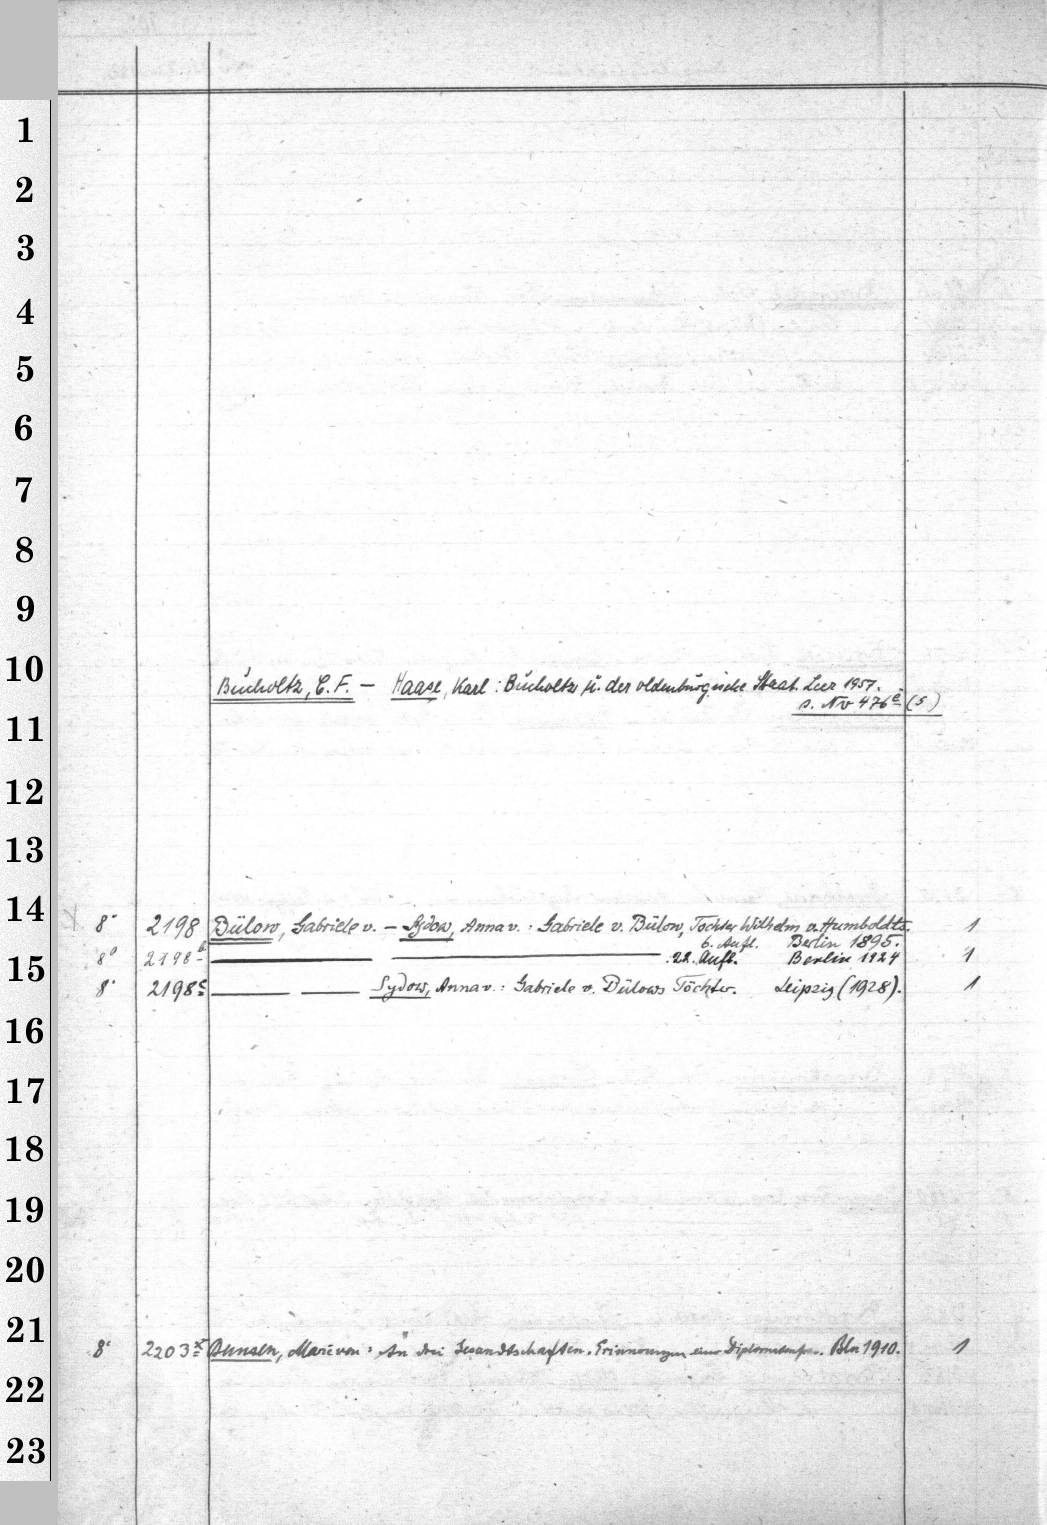 1
2
3
4
5
6
7
8
9
10
Bucholtz, C. F. — Haase, Karl : Bucholtz u. der oldenburgische Staat. Leer 1957.
s. Nv 476 e (5)
11
12
13
14
8° 2198 Bülow, Gabriele v. — Sydow, Anna v. : Gabriele v. Bülow, Tochter Wilhelm v. Humboldts. 1
6. Aufl. Berlin 1895.
15
8° 2198 22. Aufl. Berlin 1924 1
8° 2198c Sydow, Anna v. : Gabriele v. Bülows Töchter. Leipzig (1928). 1
16
17
18
19
20
21
8° 2203x Bunsen, Marie von : An drei Gesandtschaften. Erinnerungen Bln 1910. 1
22
23